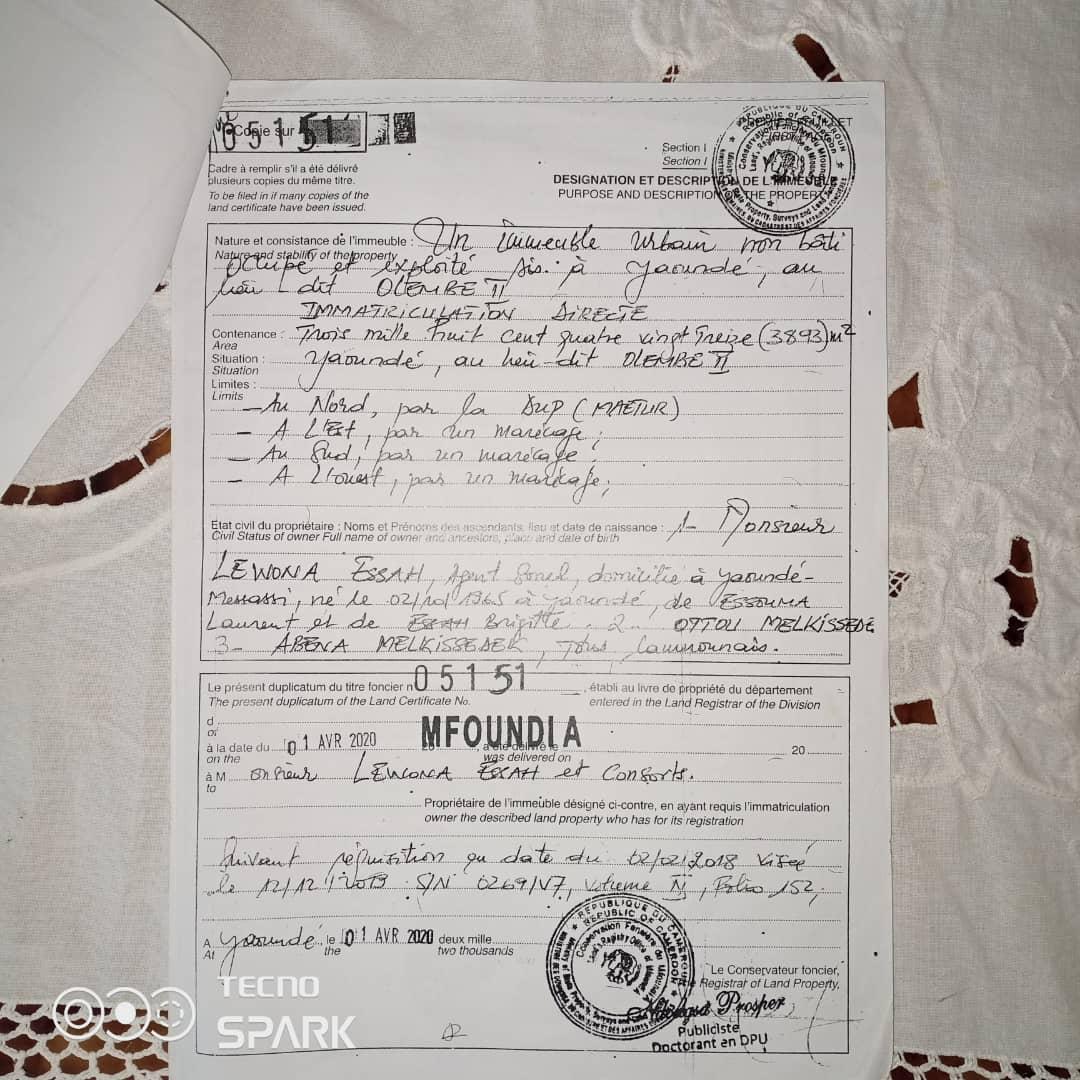 Copie sur
05151
Cadre à remplir s'il a été délivré
plusieurs copies du même titre.
To be filed in if many copies of the
land certificate have been issued.
Section I
Section I
DESIGNATION ET DESCRIPTION DE L'IMMEUBLE
PURPOSE AND DESCRIPTION OF THE PROPERTY
REPUBLIQUE DU CAMEROUN
Republic of Cameroon
Nature et consistance de l'immeuble : Un immeuble Urbain non bâti
Nature and stability of the property
occupé et exploité sis à Yaoundé, au
lieu-dit OLEMBE II
IMMATRICULATION DIRECTE
Contenance : Trois mille huit cent quatre vingt treize (3893) m²
Area
Situation : Yaoundé, au lieu-dit OLEMBE II
Situation
Limites :
Limits
- Au Nord, par la DUP (MAETUR)
- A L'Est, par un marécage ;
- Au Sud, par un marécage ;
- A L'ouest, par un marécage ;
Etat civil du propriétaire : Noms et Prénoms des ascendants, lieu et date de naissance : 1- Monsieur
Civil Status of owner Full name of owner and ancestors, place and date of birth
LEWONA ESSAH, Agent , domicilié à Yaoundé-
Messassi, né le 1965 à Yaoundé, de ESSOMA
Laurent et de ESSAH Brigitte. 2- OTTOU MELKISSEDE
3- ABENA MELKISSEDEK, Tous Camerounais.
Le présent duplicatum du titre foncier n° 05151, établi au livre de propriété du département
The present duplicatum of the Land Certificate No. entered in the Land Registrar of the Division
d
of
MFOUNDI A
à la date du 01 AVR 2020 20 a été délivré le 20
on the was delivered on
à Monsieur LEWONA ESSAH et Consorts.
to
Propriétaire de l'immeuble désigné ci-contre, en ayant requis l'immatriculation
owner the described land property who has for its registration
Suivant réquisition en date du 02/02/2018 visée
le 12/12/2019 S/N 0269/V7, Volume , Folio 152,
REPUBLIQUE DU CAMEROUN
REPUBLIC OF CAMEROON
Conservation Foncière du Mfoundi A
Land's Registry Office of Mfoundi A
A Yaoundé, le 01 AVR 2020 deux mille
At the two thousands
Le Conservateur foncier,
The Registrar of Land Property,
Prosper
Publiciste
Doctorant en DPU
TECNO
SPARK